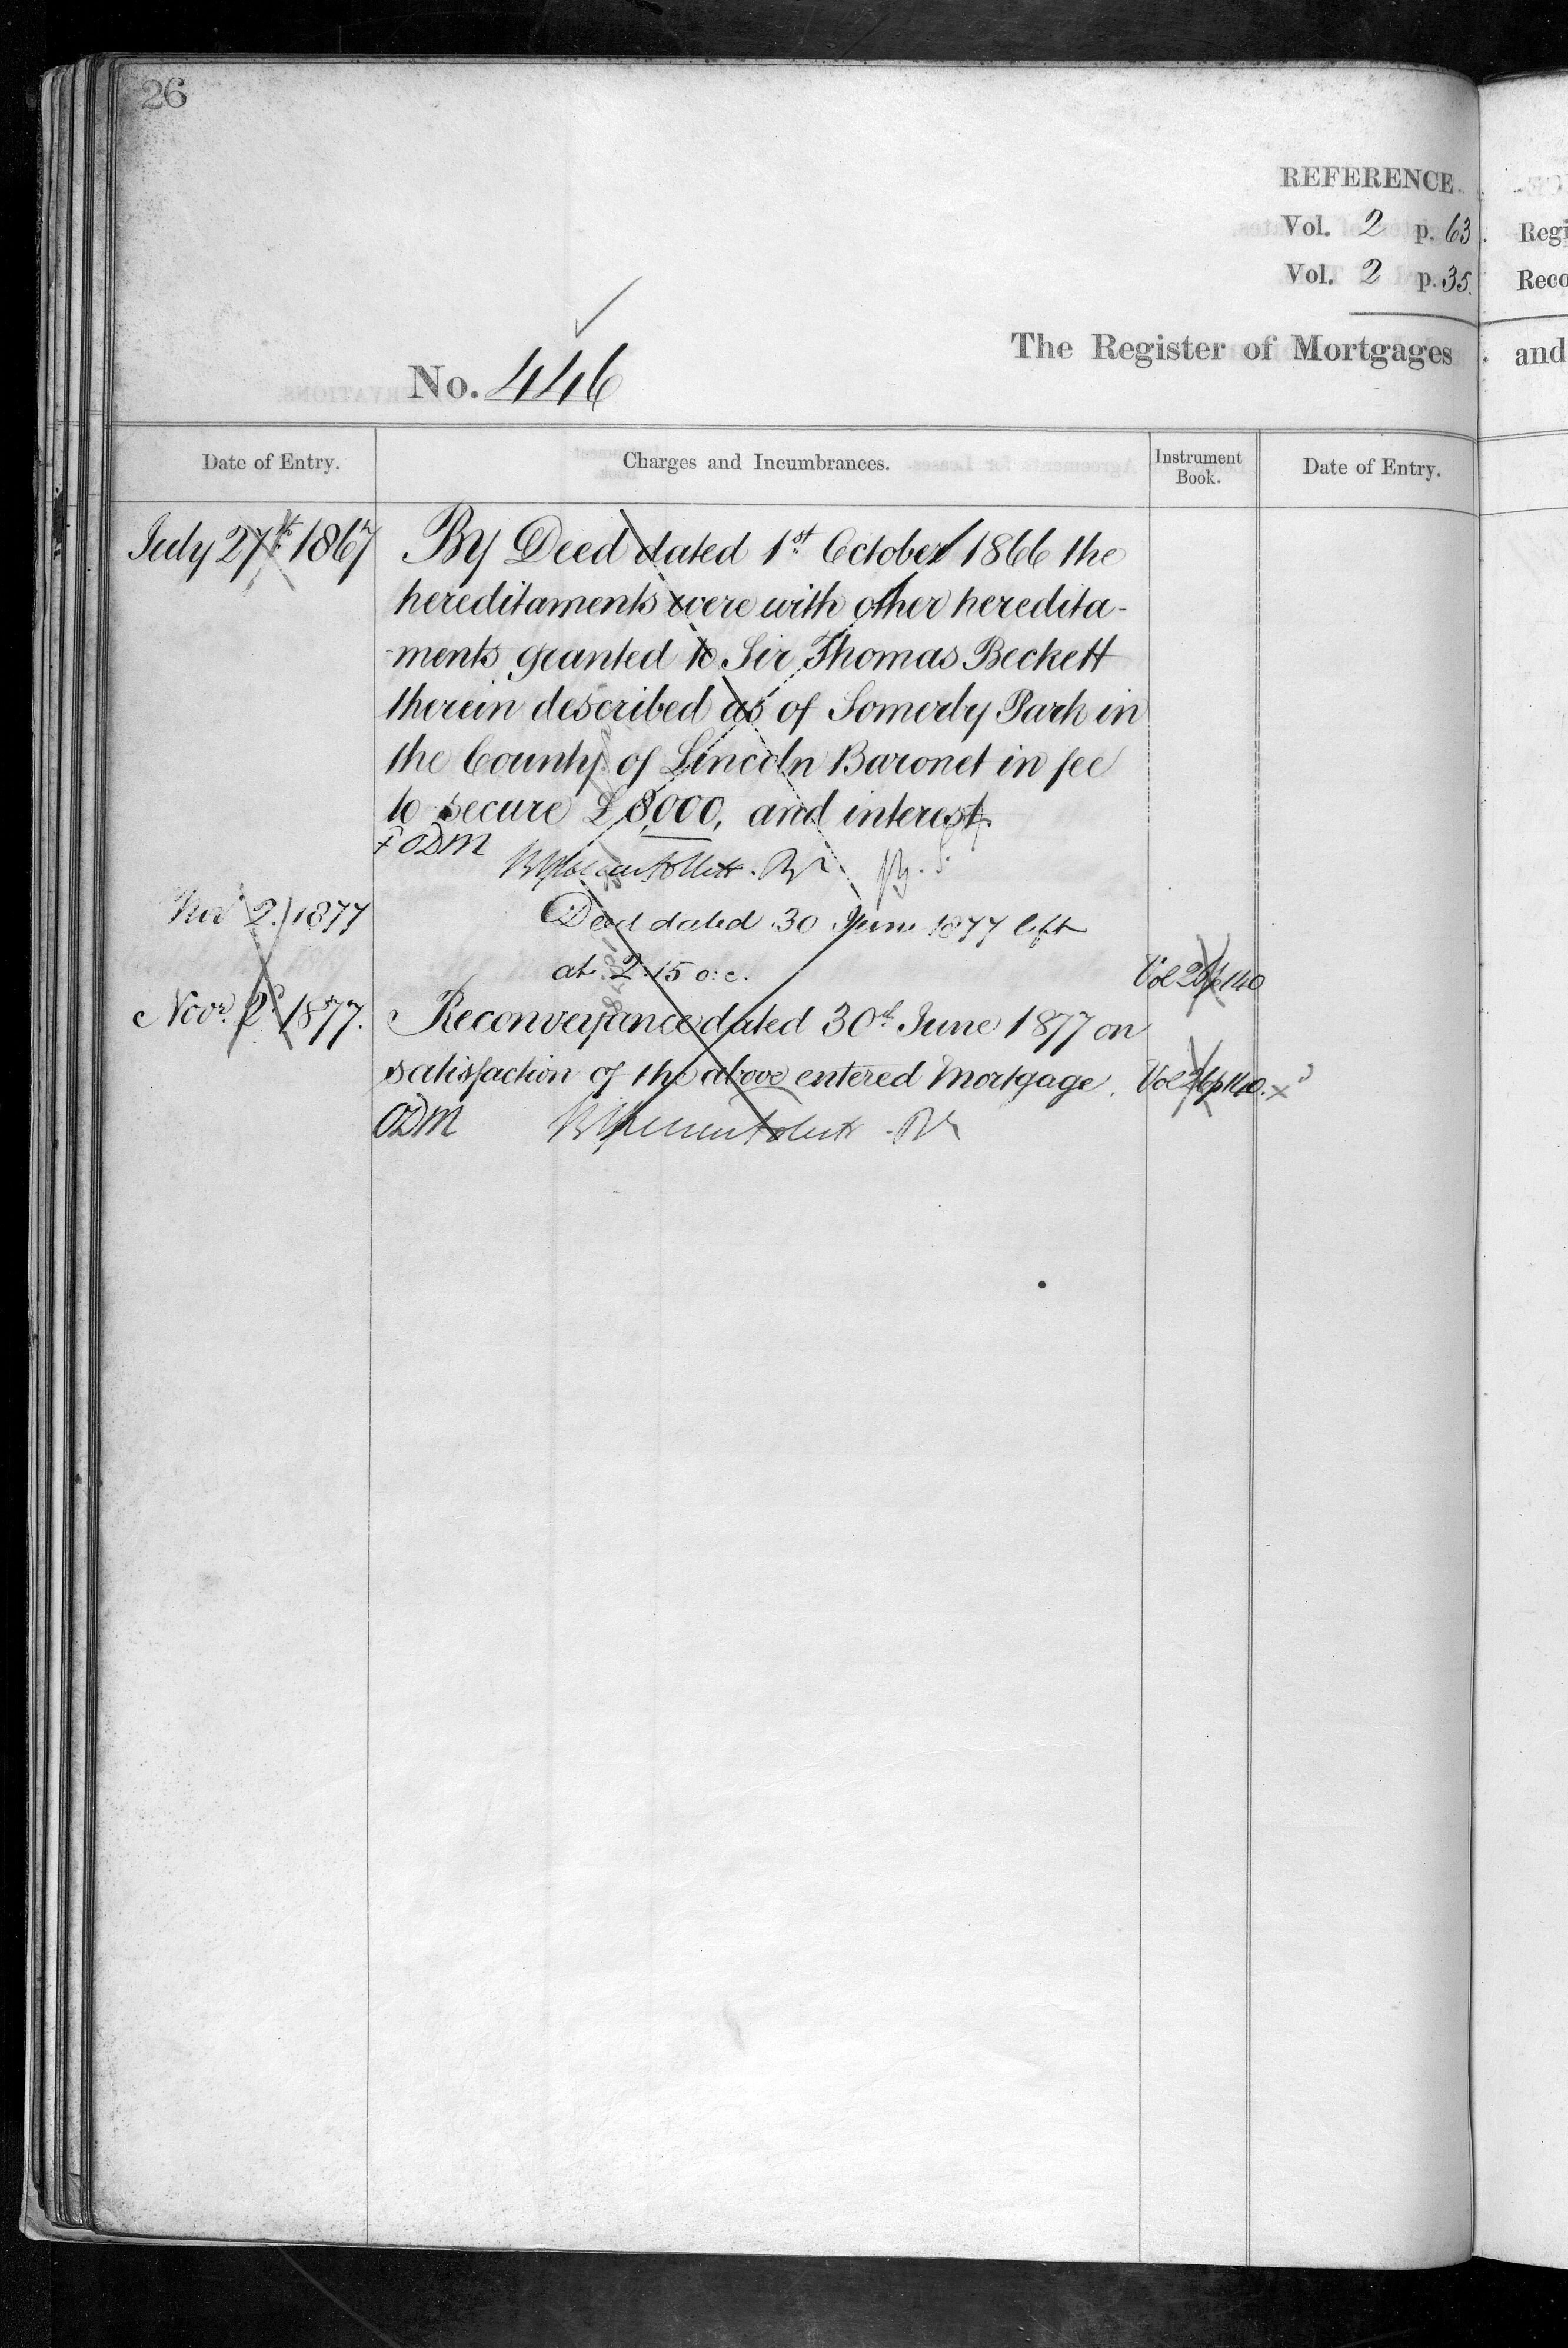 26
REFERENCE.
Vol. 2 p. 63
Vol. 2 p. 35.
Regi
Reco
No. 446
The Register of Mortgages
and
Date of Entry.
Charges and Incumbrances.
Instrument Book.
Date of Entry.
July 27th 1867
By Deed dated 1st October 1866 the
hereditaments were with other heredita-
-ments granted to Sir Thomas Beckett
therein described as of Somerby Park in
the County of Lincoln Baronet in fee
to secure £8,000, and interest.
ODM
Nov 2. 1877
Deed dated 30 June 1877 left
at 2.15 o.c.
Vol 26 p 140
Novr. 2d 1877.
Reconveyance dated 30th June 1877 on
satisfaction of the above entered Mortgage.
Vol 26 p 140.
ODM